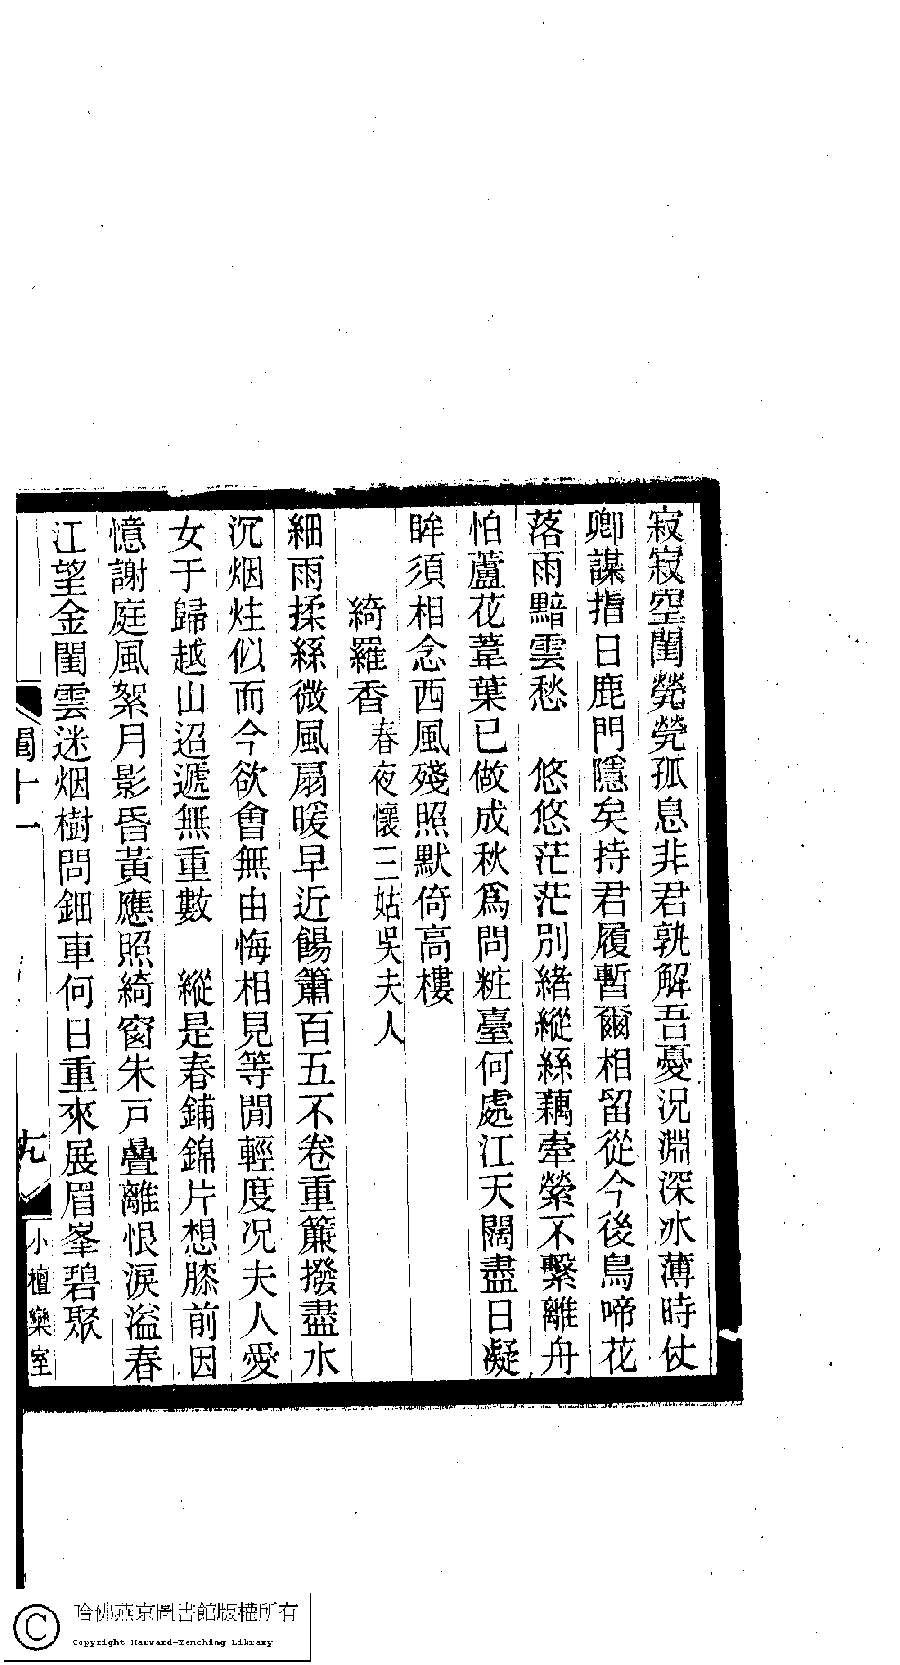 寂寂空閨煢煢孤息非君孰解吾憂況淵深冰薄時仗
卿謀指日鹿門隱矣持君履暫爾相留從今後鳥啼花
落雨黯雲愁　悠悠茫茫別緒縱絲藕牽縈不繫離舟
怕蘆花葦葉已做成秋爲問粧臺何處江天闊盡日凝
眸須相念西風殘照默倚高樓
綺羅香春夜懷三姑吳夫人
細雨揉絲微風扇暖早近餳簫百五不卷重簾撥盡水
沉烟炷似而今欲會無由悔相見等閒輕度況夫人愛
女于歸越山迢遞無重數　縱是春鋪錦片想膝前因
憶謝庭風絮月影昏黃應照綺窗朱戸疊離恨淚溢春
江望金閨雲迷烟樹問鈿車何日重來展眉峯碧聚
閨十一
九
小檀欒室
哈佛燕京圖書館版權所有
Copyright Harvard-Yenching Library